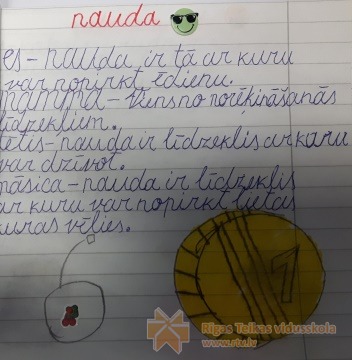 nauda
es - nauda ir tā ar kuru
var nopirkt ēdienu.
mamma - Viens no norēķināšanās
līdzekļiem.
tētis - nauda ir līdzeklis ar kuru
var dzīvot.
māsica - nauda ir līdzeklis
ar kuru var nopirkt lietas
kuras vēlies.
1
Rīgas Teikas vidusskola
www.rtv.lv